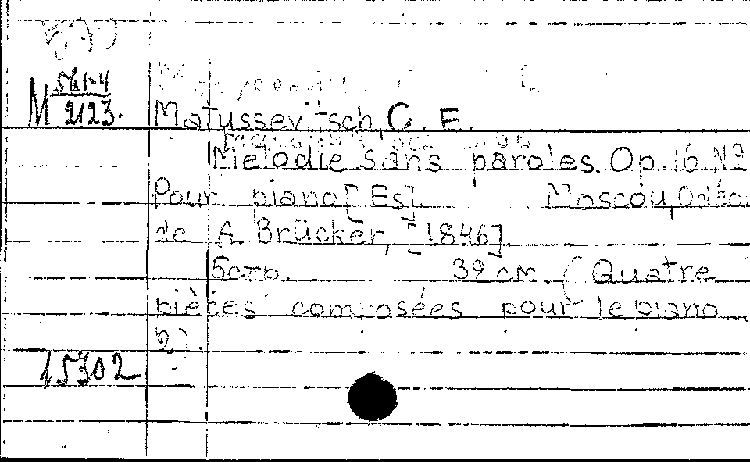 М 561-4
2123.
Matussevitsch, C. E.
Mélodie sans paroles. Op. 16 №
Pour piano [Es]. Moscou,
de A. Brücker, [1846]
5 стр. 39 см. (Quatre
pièces composées pour le piano
2).
15302